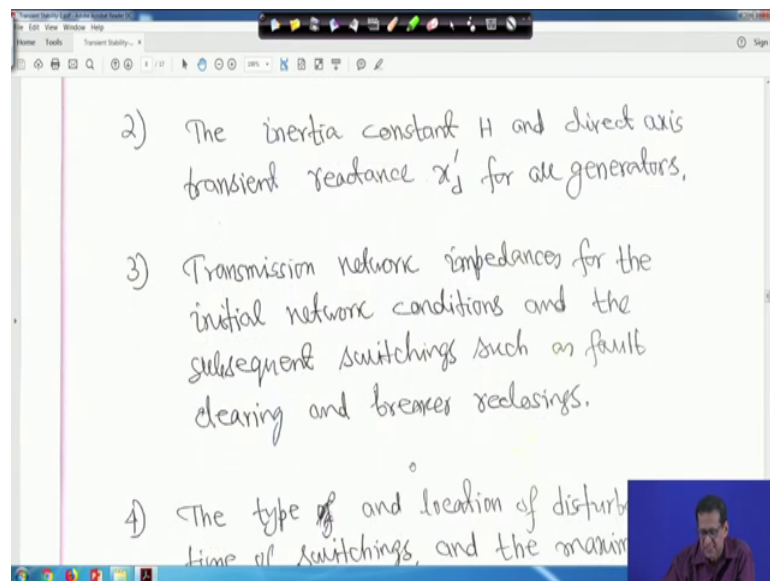 Transient Stability-I.pdf - Adobe Acrobat Reader DC
File Edit View Window Help
Home Tools Transient Stability-... × Sign
8 / 17
2) The inertia constant H and direct axis
transient reactance x'd for all generators.
3) Transmission network impedances for the
initial network conditions and the
subsequent switchings such as fault
clearing and breaker reclosings.
4) The type of and location of
time of switchings, and the